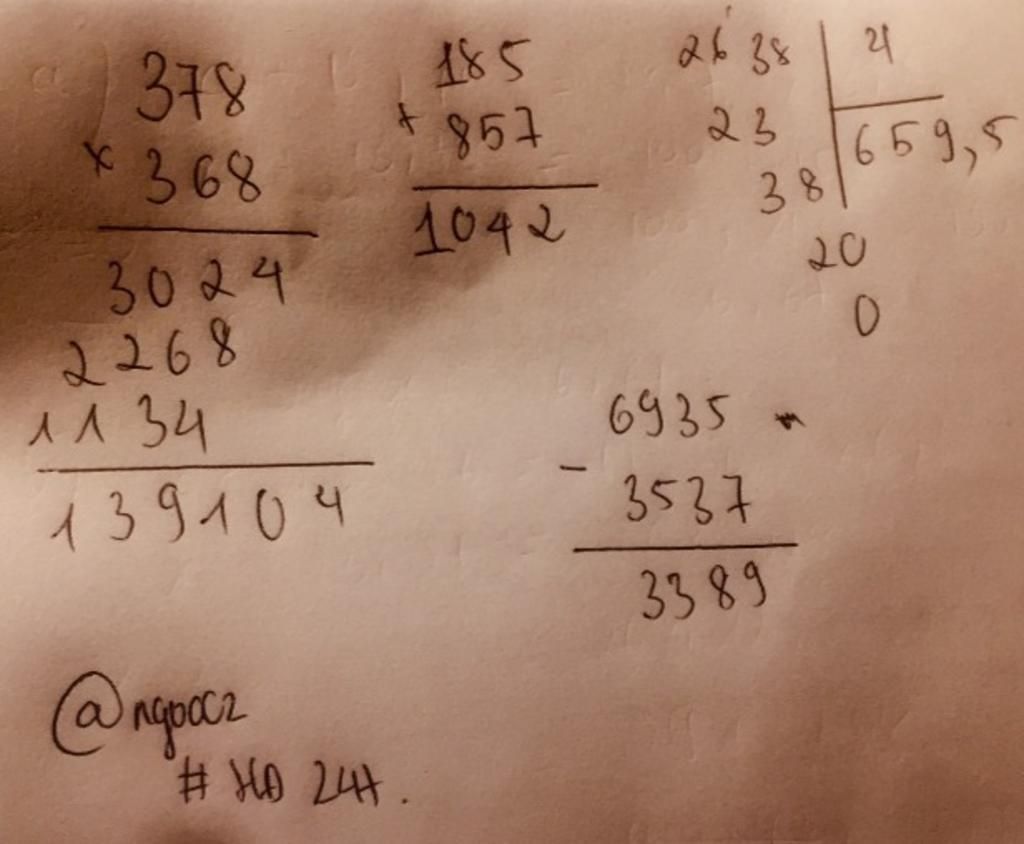 378
× 368
3024
2268
1134
139104
185
+ 857
1042
2638 4
23 659,5
38
20
0
6935
- 3537
3389
@ngpocz
# HD 24H.